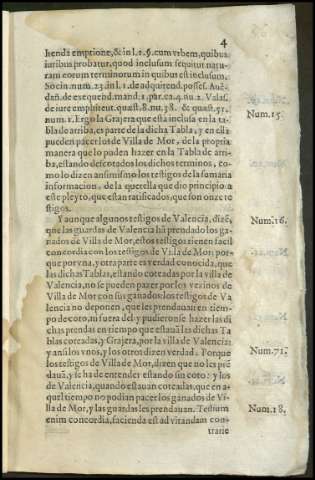 4
henda emptione, & in l. 2. §. cum vrbem, quibus
iuribus probatur, quod inclusum sequitur natu-
ram eorum terminorum in quibus est inclusum.
Socin. num. 23. in l. 1. de adquirend. posses. Auē-
dañ. de exequend. mand. 1. par. ca. 4. nu. 2. Valas.
de iure emphiteut. quæst. 8. nu. 38. & quæst. 51.
num. 1. Ergo la Grajera que està inclusa en la ta-
bla de arriba, es parte de la dicha Tabla, y en ella
pueden pacer los de Villa de Mor, de la propria
manera que lo puden hazer en la Tabla de arri-
ba, estando descotados los dichos terminos, co-
mo lo dizen ansimismo los testigos de la sumaria
informacion, de la querella que dio principio a
este pleyto, que estan ratificados, que son onze te-
stigos.
Y aunque algunos testigos de Valencia, dizē,
que las guardas de Valencia hā prendado los ga-
nados de Villa de Mor, estos testigos tienen facil
concordia con los testigos de Villa de Mor: por-
que por vna, y otra parte es verdad conocida, que
las dichas Tablas, estando coteadas por la villa de
Valencia, no se pueden pazer por los vezinos de
Villa de Mor con sus ganados: los testigos de Va-
lencia no deponen, que les prendauan en tiem-
po de coto, ni fuera del y pudieron se hazer las di-
chas prendas en tiempo que estauā las dichas Ta
blas coteadas, y Grajera, por la villa de Valencia:
y ansi los vnos, y los otros dizen verdad. Porque
los testigos de Villa de Mor, dizen que no les prē
dauā, y se ha de entender estando sin coto: y los
de Valencia, quando estauan coteadas, que en a-
quel tiempo no podian pacer los ganados de Vi-
lla de Mor, y las guardas les prendauan. Testium
enim concordia, facienda est ad vitandam con-
trarie
Num. 15.
Num. 16.
Num. 71.
Num. 18.